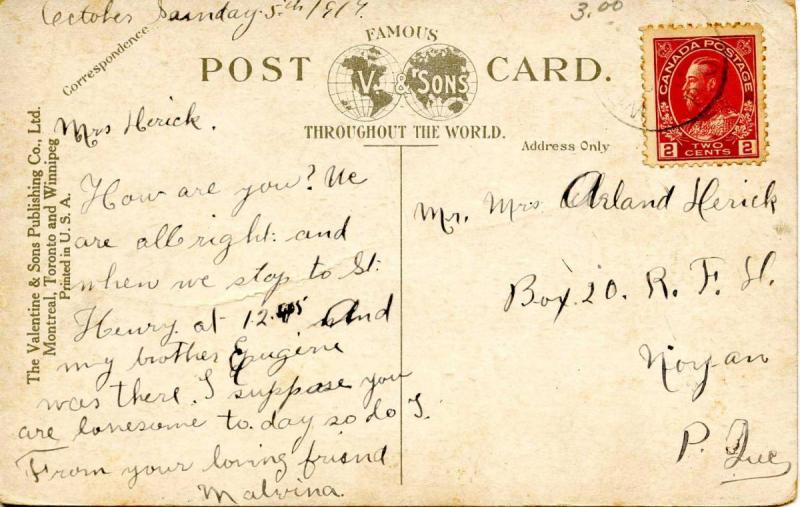 October Sunday 5th 1919.
3.00
Correspondence
FAMOUS
POST CARD.
V. & SONS
THROUGHOUT THE WORLD.
Address Only
CANADA POSTAGE
2 TWO CENTS 2
The Valentine & Sons Publishing Co., Ltd.
Montreal, Toronto and Winnipeg
Printed in U. S. A.
Mrs Herick.
How are you? We
are all right: and
when we stop to St.
Henry at 12.45 And
my brother Eugine
was there. I suppose you
are lonesome to. day so do I.
From your loving friend
Malvina.
Mr. Mrs Arland Herick
Box. 20. R. F. H.
Noyan
P. Que